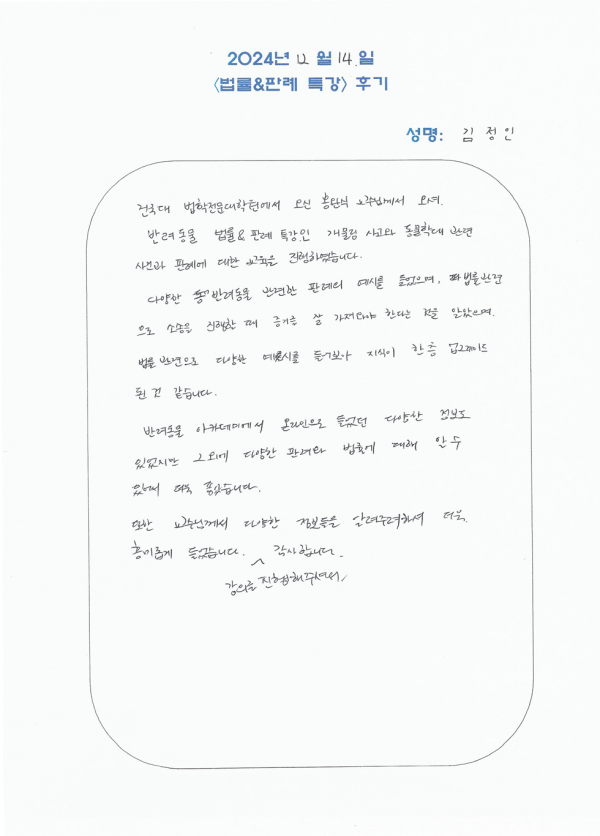 2024년 12월 14일
<법률&판례 특강> 후기
성명: 김정인
건국대 법학전문대학원에서 오신 홍완식 교수님께서 오셔.
반려동물 법률&판례 특강인 개물림 사고와 동물학대 관련
사건과 판례에 대한 교육을 진행하였습니다.
다양한 반려동물 관련한 판례의 예시를 들었으며, 법률관련
으로 소송을 진행한 때 증거를 잘 가져와야 한다는 것을 알았으며.
법률 관련으로 다양한 예시를 들어보아 지식이 한층 업그레이드
된 것 같습니다.
반려동물 아카데미에서 온라인으로 들었던 다양한 정보도
있었지만 그 외에 다양한 판례와 법률에 대해 알 수
있어서 더욱 좋았습니다.
또한 교수님께서 다양한 정보들을 알려주려하셔 더욱.
흥미롭게 들었습니다. 강의를 진행해주셔서 감사합니다.